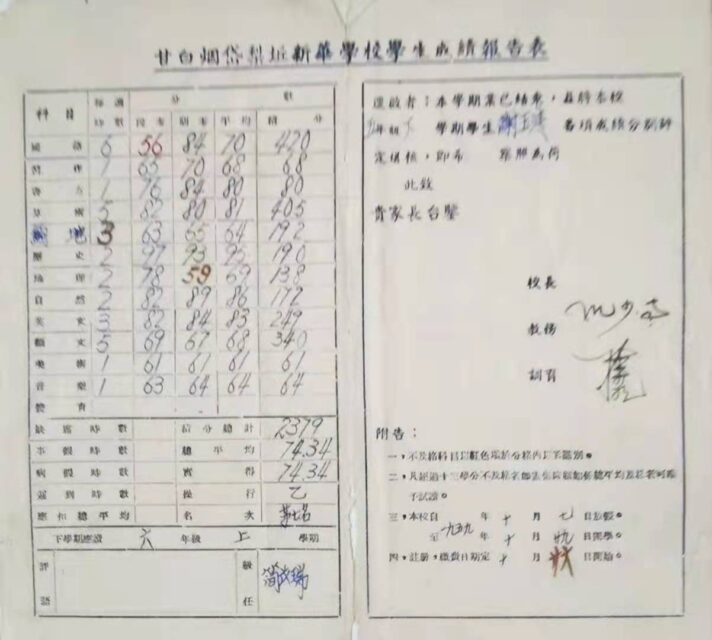 甘白烟岱梨坵新華學校學生成績報告表
科目 每週時數 分數
段考 期末 平均 積分
國語 6 56 84 70 420
習作 1 65 70 68 68
1 76 84 80 80
算術 5 82 80 81 405
3 63 65 64 192
歷史 2 97 93 95 190
地理 2 78 59 69 138
自然 2 82 89 86 172
英文 3 82 84 83 249
5 69 67 68 340
美術 1 61 61 61 61
音樂 1 63 64 64 64
體育
缺席時數 積分總計 2379
事假時數 總平均 74.34
病假時數 實得 74.34
遲到時數 操行 乙
應扣總平均 名次
下學期應讀 六 年級 上 學期
評語 級任
逕啟者：本學期業已結束，茲將本校
年級 下 學期學生 各項成績分別評
定填後，即希 雅照為荷
此致
貴家長台鑒
校長
教務
訓育
附告：
一，不及格科目以紅色填於分格內以示識別。
予試讀。
三，本校自 年 十 月 七 日放假。
至 一九五九 年 十 月 十九 日開學。
四，註冊，繳費日期定 十 月 日開始。